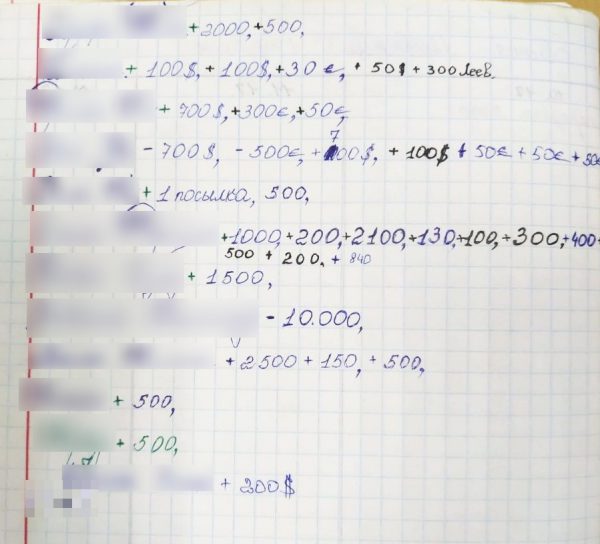 +2000, +500,
+ 100$, + 100$, +30 €, + 50$ + 300 леев.
+ 700$, +300€, +50€,
- 700$, - 500€, + 700$, + 100$ + 50€ + 50€ + 50€
+ 1 посылка, 500,
+1000, +200, +2100, +130, +100, +300, +400
500 + 200, + 840
+ 1500,
- 10.000,
+ 2500 + 150, + 500,
+ 500,
+ 500,
+ 200$